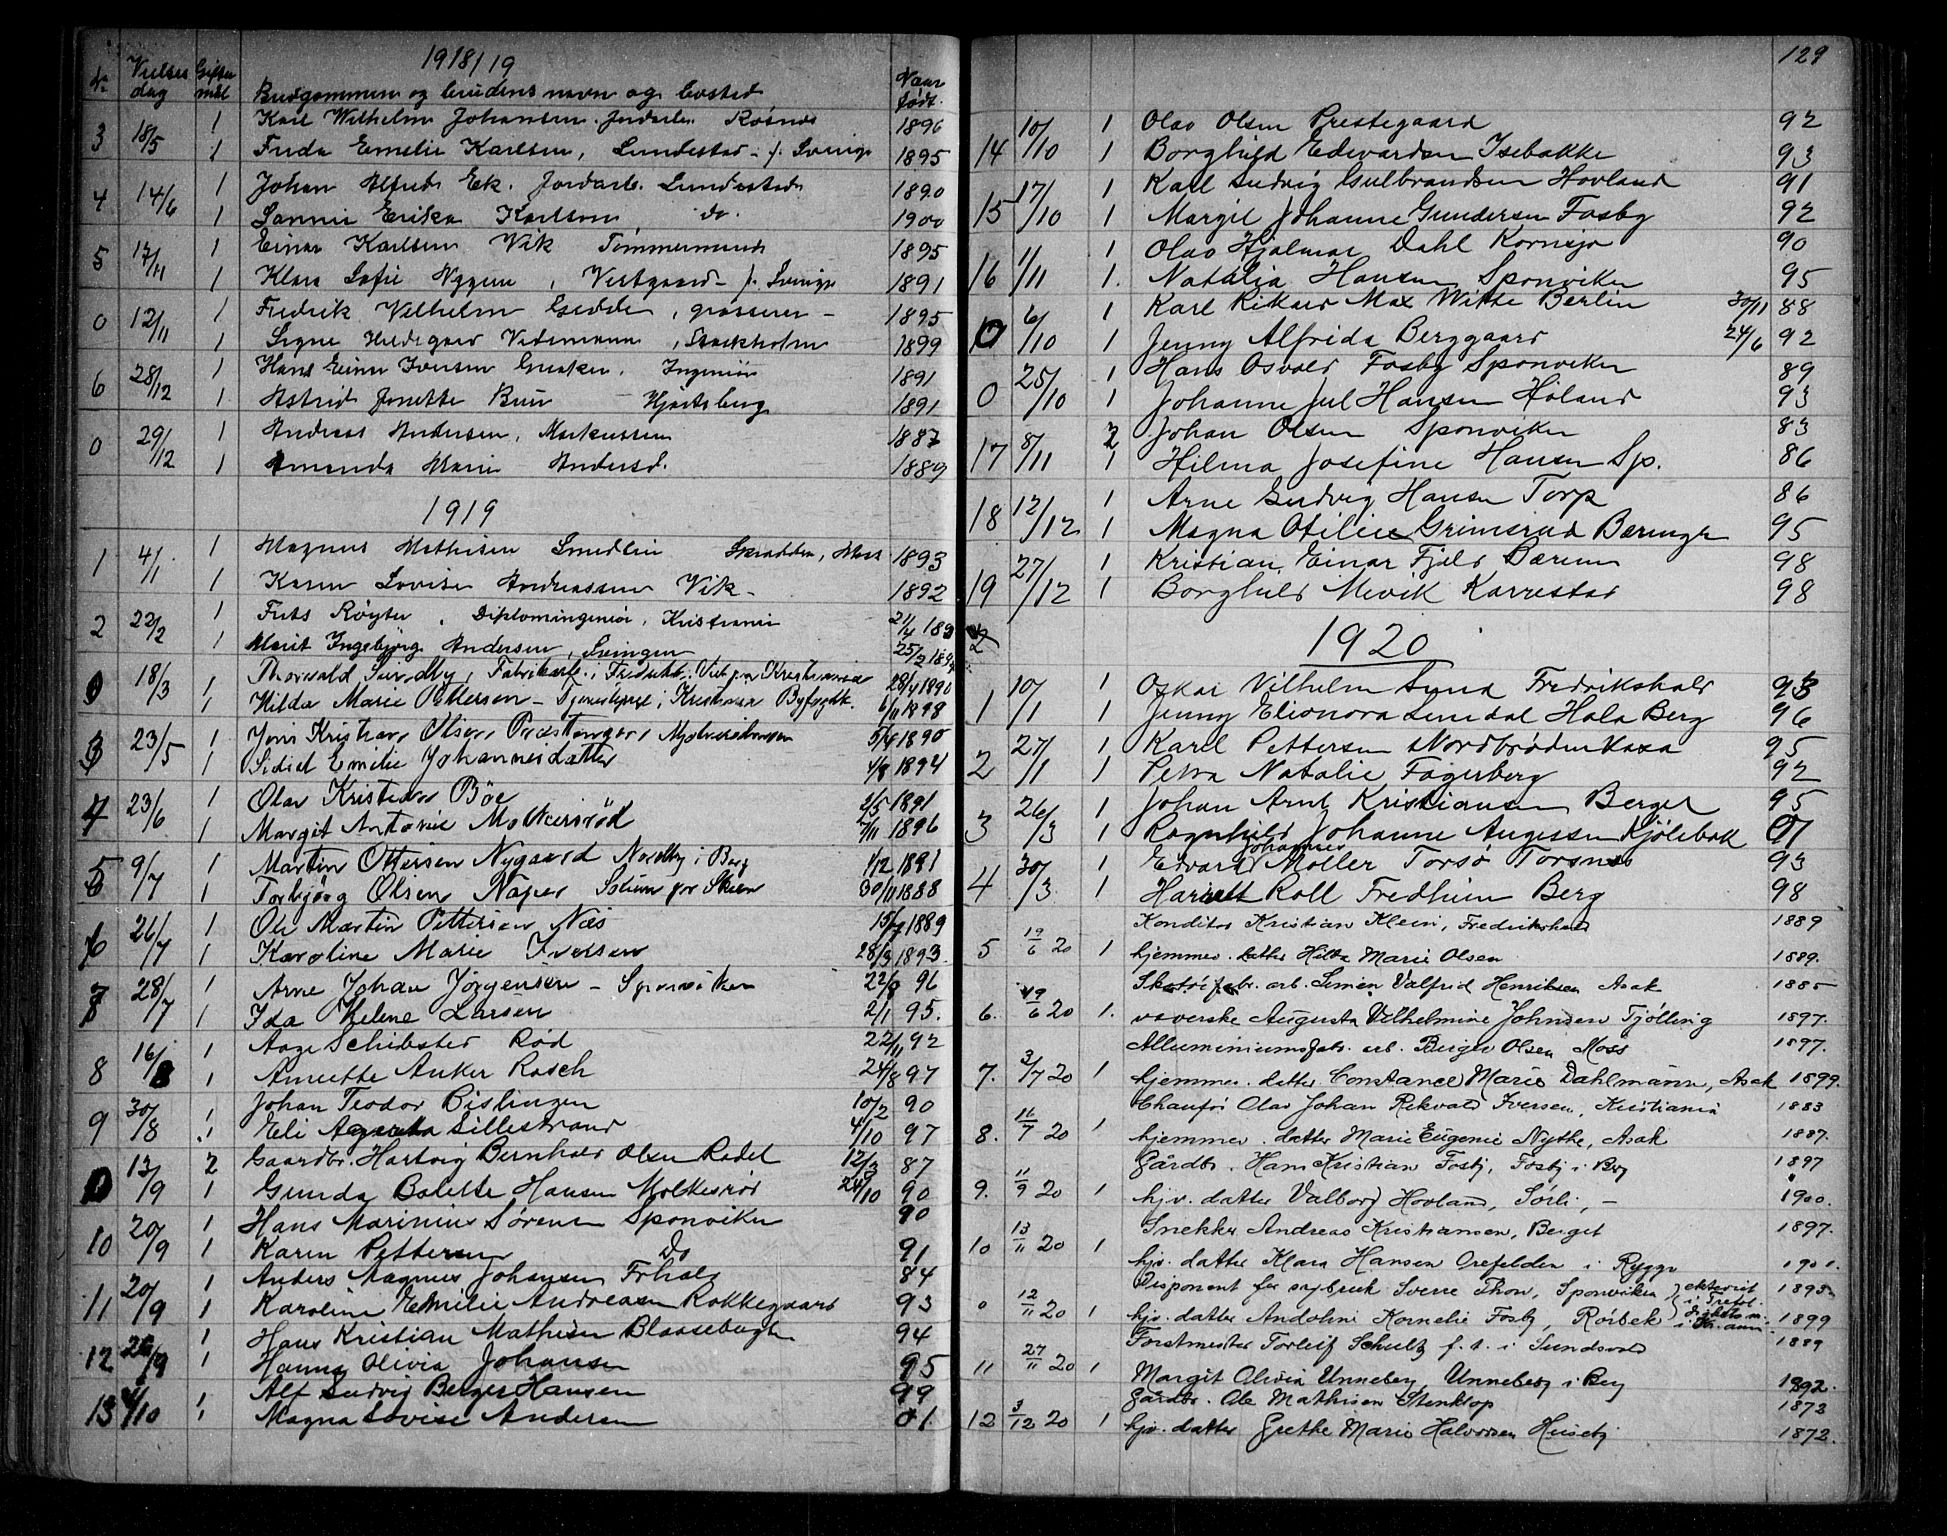 1918/19
Nr Vielses dag Gifter mål Brudgommens og brudens navn og bosted Naar født.
3 18/5 1 Karl Wilhelm Johansen. Jordarb. Røsnes 1896
1 Frida Emelie Karlsen, Lundestad - f. Sverige 1895
4 14/6 1 Johan Alfred Ek. Jordarb. Lundestad 1890
1 Erika Karlson do. 1900
5 17/11 1 Einar Karlsen Vik Tømmermand 1895
1 Klara Sofie Nygren, Vestgaard - f. Sverige 1891
0 12/11 1 Fredrik Vilhelm Gedde, grosserer - 1895
1 Signe Hildegard Videmann, Stockholm 1899
6 28/12 1 Hans Einer Iversen. Ingeniør 1891
1 Astrid Jonette Buer Hjortsberg 1891
0 29/12 1 Andreas Andersen, Markussen 1887
1 Amanda Marie Andersd. 1889
1919
1 4/1 1 Magnus Mathisen Smedlien Skrædder, Moss 1893
1 Karen Lovise Andreassen Vik - 1892
2 22/2 1 Frits Røyter, Diplomingeniør, Kristiania 21/4 189
1 Marit Ingebjørg Andersen, Svingen 25/2 189
0 18/3 1 Thorvald Sundby, Fabrikarb. i Fredrikst. Kristiania 28/4 1890
1 Hilda Marie Pettersen - Tjenestepige i Kristiania Byfogdk. 6/11 1898
3 23/5 1 Jens Kristian Olsen Prestenger, 5/4 1890
1 Sidsel Emilie Johannesdatter 4/8 1894
4 23/6 1 Olav Kristian Bøe 2/5 1891
1 Margit Antonie Molkersrød 7/11 1896
5 9/7 1 Martin Ottersen Nygaard Nordby i Berg 1/12 1891
1 Torbjørg Olsen Naper Solum pr Skien 30/11 1888
6 26/7 1 Ole Martin Pettersen Næs 15/7 1889
1 Karoline Marie Iversen 28/3 1893.
7 28/7 1 Arne Johan Jørgensen - Sponviken 22/8 96
1 Ida Helene Larsen 2/1 95.
8 16/8 1 Aage Schibsted Rød 22/11 92
1 Annette Anker Rasch 24/8 97
9 30/8 1 Johan Teodor Bislingen 10/2 90
1 Eli Agneta Lillestrand 4/10 97
0 13/9 2 Gaardbr. Hartvig Bernhard Olsen Rødet 12/3 87
1 Gunda Bolette Hansen Molkesrød 24/10 90
10 20/9 1 Hans Marinius Sørensen Sponviken 90
1 Karen Pettersen Do 91
11 20/9 1 Anders Magnus Johansen Frhald 84
1 Karoline Emilie Andreasen Rokkegaard 93
12 26/9 1 Hans Kristian Mathisen Blaasebagh 94
1 Hanna Olivia Johansen 95
13 4/10 1 Alf Ludvig Berger Hansen 99
1 Magna Lovise Andersen 01
129
14 10/10 1 Olav Olsen Prestegaard 92
1 Borghild Edvardsen Isebakke 93
15 17/10 1 Karl Ludvig Gulbrandsen Hovland 91
1 Margit Johanne Gundersen Fosby 92
16 1/11 1 Olav Hjalmar Dahl Kornsjø 90
1. Natalia Hansen Sponviken 95
0 6/10 1 Karl Rikard Max Witte Berlin 30/11 88
1 Jenny Alfrida Berggaard 24/6 92
0 25/10 1 Hans Osvald Fosby Sponviken 89
1 Johanne Jul Hansen Høland 93
17 8/11 2 Johan Olsen Sponviken 83
1 Hilma Josefine Hansen Sp. 86
18 12/12 1 Arne Ludvig Hansen Torp 86
1 Magna Otilie Grimsrud Berungh 95
19 27/12 1 Kristian Einar Fjeld Bærum 98
1 Borghild Mevik Karrestad 98
1920
1 10/1 1 Oskar Vilhelm Lund Fredrikshald 93
1 Jenny Elionora Lindal Hola Berg 96
2 27/1 1 Karl Pettersen Nordbrøden Vasa 95
1 Petra Natalie Fagerberg 92
3 26/3 1 Johan Arnt Kristiansen Berget 95
1 Ragnhild Johanne Augessen Kjølebok 01
4 30/3 1 Edvard Johannes Møller Torsø Torsnes 93
1 Harriett Roll Fredheim Berg 98
5 19/6 20 1 Konditor Kristian Klein, Fredrikshald 1889
hjemmev. datter Hilda Marie Olsen 1889.
6. 19/6 20 1. Skotøifabr. arb. Simen Valfrid Henriksen Asak 1885
væverske Augusta Vilhelmine Johnsen Tjølling 1897.
7. 3/7 20 1 Alluminiumsfabr. arb. Berger Olsen Moss 1897.
hjemmev. datter Constance Marie Dahlmann, Asak 1899.
8. 11/7 20 1 Chaufør Olav Johan Rekvald Iversen, Kristiania 1883
hjemmev. datter Marie Eugenie Nythe, Asak 1887.
9. 11/9 20 1 Gårdbr. Hans Kristian Fosby, Fosby i Berg 1897
hjv. datter Valborg Hovland, Sørli - 1900.
10 13/11 20 1 Snekker Andreas Kristiansen, Berget 1897.
hjv. datter Klara Hansen Orefelden i Rygge 1901.
0 12/11 20 1 Disponent for sagbruk Sverre Thon, Sponviken 1895
hjv. datter Andohne Kornelie Fosby, Rørbek 1899
11 27/11 20 1 Forstmester Torleif Schultz f. t. i Sundsvald 1889
Margit Olivia Unneberg Unneberg i Berg 1892.
12 3/12 20 1 Gårdbr. Ole Mathisen Stenktop 1873
hjv. datter Grethe Marie Halvorsen Huseby 1872.